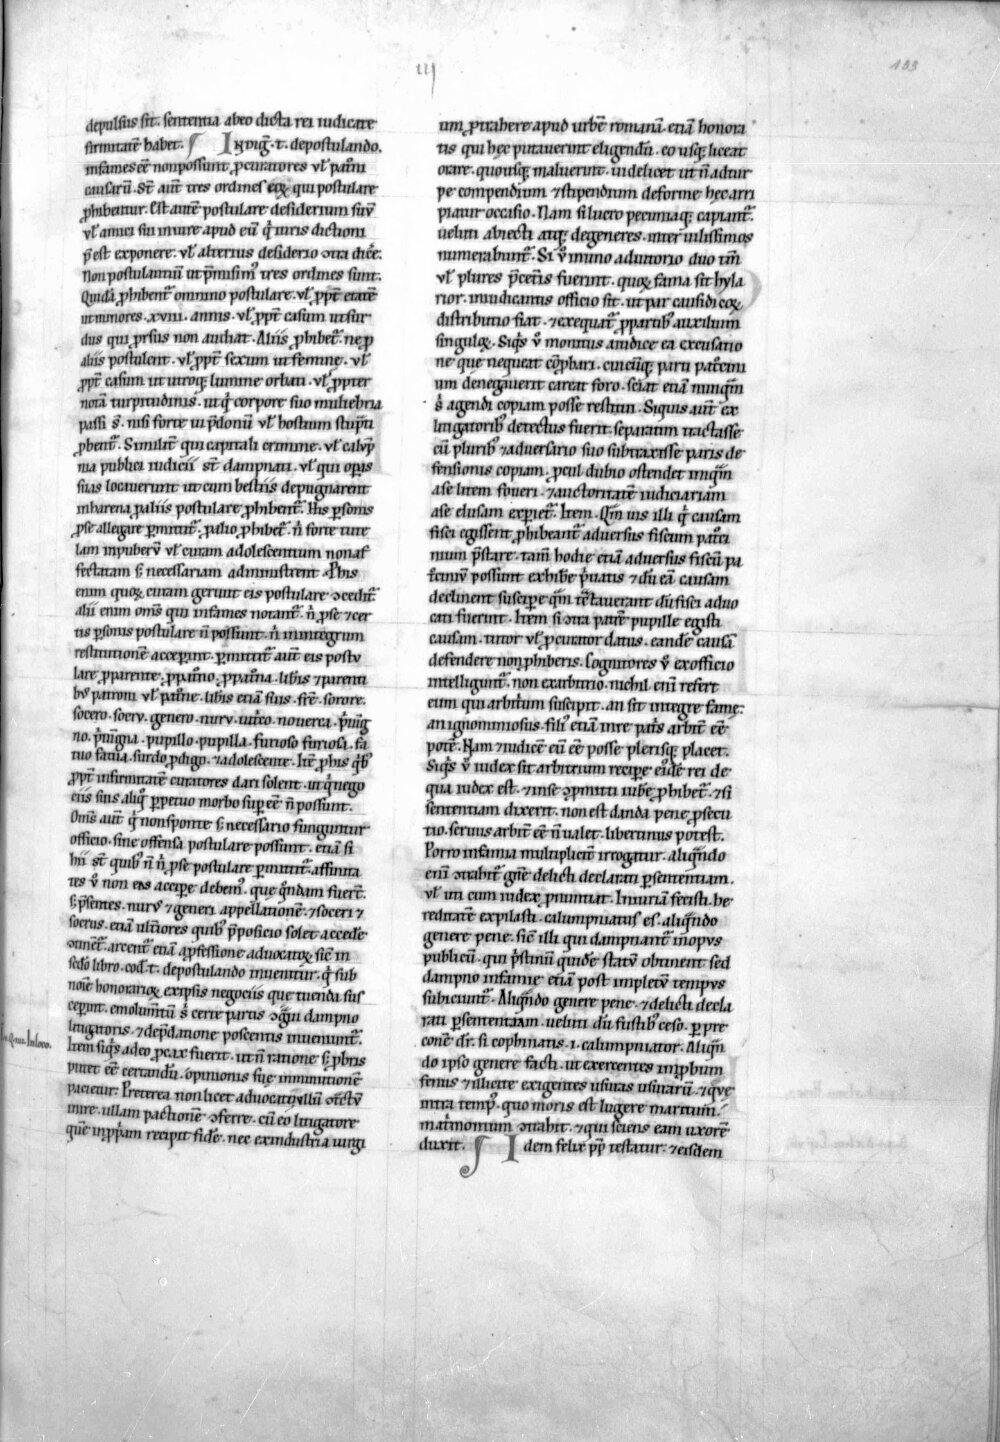 iij
103
depulsus sit. sententia abeo dicta rei iudicate
firmitatē habet. Indiḡ.t. depostulando.
infames eē nonpossunt ꝓcuratores vl̄ patni
causarū. St̄ aut̄ tres ordines eoꝝ qui postulare
ꝓhibentur. Est autē postulare desiderium suū
vl̄ amici sui iniure apud eū q̇ iuris dictioni
p̄est exponere. vl̄ alterius desiderio ꝯtra dic̄e.
Non postulantiū ut p̄misim᷒ tres ordines sunt.
Quidā ꝓhibent᷒ omnino postulare. vl̄ ꝓpt̄ etatē
ut minores .xviii. annis. vl̄ ꝓpt̄ casum ut sur
dus qui ꝓrsus non audiat. Aliis ꝓhibet᷒. ne ꝓ
aliis postulent. vl̄ ꝓpt̄ sexum ut femine. vl̄
ꝓpt̄ casum ut utroqꝫ lumine orbati. vl̄ ꝓpter
notā turpitudinis. ut q̇ corpore suo muliebria
passi s̄. nisi forte ui p̄donū vl̄ hostium stupͣti
ꝓbent᷒. Similit̄ qui capitali crimine. vl̄ calūp
nia publici iudicii st̄ dampnati. vl̄ qui opͣs
suas locaverunt ut cum bestiis depugnarent
inharena ꝓaliis postulare ꝓhibent᷒. His ꝑsonis
ꝓse allegare ꝑmittit᷒. ꝓalio ꝓhibet᷒. n̄ forte tute
lam inpuberū vl̄ curam adolescentium nonaf
fectatam s; necessariam administrent. Ꝓhis
enim quoꝝ curam gerunt eis postulare ꝯcedit᷒
alii enim om̄s qui infames notant᷒. n̄ ꝓse 7 cer
tis ꝑsonis postulare n̄ possunt. n̄ inintegrum
restitutionē acceꝑint. ꝑmittit᷒ aut̄ eis postu
lare ꝓparente. ꝓpatͦno. ꝓpatͦna. libeis 7 parenti
b᷒ patroni vl̄ patͦne. libeis etiā suis. fr̄e. sorore.
socero. socru. genero. nuru. uitͥco. noverca. p̄uig
no. p̄uigna. pupillo. pupilla. furioso furiosa. fa
tuo fatua. surdo ꝓdigo. 7 adolescente. Itē ꝓhis q̇b᷒
ꝓpt̄ infirmitatē curatores dari solent. ut q̇nego
ciis suis aliq̊ ꝑpetuo morbo suꝑeē n̄ possunt.
Om̄s aut̄ q̇ nonsponte s; necessario funguntur
officio. sine offensa postulare possunt. etiā si
hii st̄ quib᷒ n̄ n̄ ꝓse postulare ꝑmittit᷒. affinita
tes ū non eas acciꝑe debem᷒. que q̊ndam fuert̄.
s; p̄sentes. nurus 7 generi appellationē. 7 soceri 7
socrus. etiā ulṫiores quib᷒ p̄posicio solet accedēe
ꝯtinet᷒. arcent᷒ etiā aꝓfessione aduocatoꝝ sic̄ in
sedo libro. cod̄.t. depostulando inuenitur. q̇ sub
noīe honorarioꝝ exipsis negociis que tuenda sus
ceꝑint. emolumtū s̄ certe partis ꝯgͣui dampno
litigatoris. 7 dep̄datione poscentis inuenīunt᷒.
Item siq̇s adeo ꝓcax fuerit. ut n̄ ratione s; ꝓbris
putet eē certandū. opinionis sue inminutionē
pacietur. Preterea non licet advocato ullū ꝯtͣctū
inire. ullam pactionē ꝯferre. cū eo litigatore
quē inꝓpͥam recipit fidē. nec exindustria iurgi
um ꝓtrahere apud urbē romanā. etiā honora
tis qui hęc putaverint eligendū. eo usqꝫ liceat
orare. quousqꝫ maluerint. uidelicet ut n̄ adtur
pe compendium 7 stipendium deforme hęc arri
piatur occasio. Nam si lucro pecuniaqꝫ capiant᷒.
veluti abiecti atqꝫ degeneres. inter vilissimos
numerabunt᷒. Si ū inuno aduitorio duo tm̄
vl̄ plures p̄cet̄is fuerint. quoꝝ fama sit hyla
rior. iniudicantis officio sit. ut par causidicoꝝ
distributio fiat. 7 exequat᷒ ꝓpartib᷒ auxilium
singuloꝝ. Siq̇s ū monitus aiudice ea excusatio
ne que nequeat cōꝓbari. cuicūqꝫ parti patͦcini
um denegaverit careat foro. sciat etiā nunqͣm
s̄ agendi copiam posse restitui. Siquis aut̄ ex
litigatorib᷒ detectus fuerit. separatim tractasse
cū plurib᷒ 7 adversario suo subtraxisse paris de
fensionis copiam. ꝓcul dubio ostendet iniqͣm
ase litem foveri. 7 auctoritatē iudiciariam
ase elusam expͥet᷒. Item. Qͣm uis illi q̇ causam
fisci egissent ꝓhibeant᷒ adversus fiscum patͦci
nium p̄stare. tam̄ hodie etiā adversus fiscū pa
tͦciniū possunt exhibēe p̓uatis 7 dū eā causam
declinent susciꝑe qͣm tc̄tauerant dū fisci aduo
cati fuerint. Item si ꝯtra patrē pupille egisti
causam. tutor vl̄ ꝓcurator datus. eandē causā
defendere nonꝓhiberis. Cognitores ū exofficio
intelligunt᷒. non exarbitrio. nichil enī refert
cum qui arbitͥum suscipit. an sit integre famę:
an ignominiosus. filī etiā inre patͥs arbit̄ eē
potē. Nam 7 iudicē eū eē posse plerisqꝫ placet.
Siq̇s ū iudex sit arbitrium reciꝑe ei᷒dē rei de
qua iudex est. 7 inse ꝯpͦmitti iubēe ꝓhibet᷒. 7 si
sententiam dixerit. non est danda pene ꝓsecu
tio. servus arbit̄ eē n̄ ualet. libertinus potest.
Porro infamia multiplicit̄ irrogatur. aliqͣndo
enī ꝯtͣhit᷒ gn̄e delicti declarati ꝑsententiam.
vl̄ un cum iudex ꝓnuntiat. Iniuriā fecisti. he
reditatē expilasti. calumpniatus es. aliqͣndo
genere pene. sic̄ illi qui dampnant᷒ inopus
publicū. qui p̓stinū quidē statū obtinent sed
dampno infamie etiam post impletū tempus
subiciunt᷒. Aliqͣndo genere pene. 7 delicti decla
rati ꝑsententiam. veluti dū fustib᷒ ceso. ꝑpre
conē dr̄. si cophinatis .i. calumpniator. Aliqͣn
do ipso genere facti. ut exercentes inꝓbum
fenus 7 illicite exigentes usuras usurarū. 7 que
intra temp᷒. quo moris est lugere maritum.
matͥmonium ꝯtͣhit. 7 qui sciens eam uxorē
duxit. Idem felix pp̄ testatur. 7 eisdem